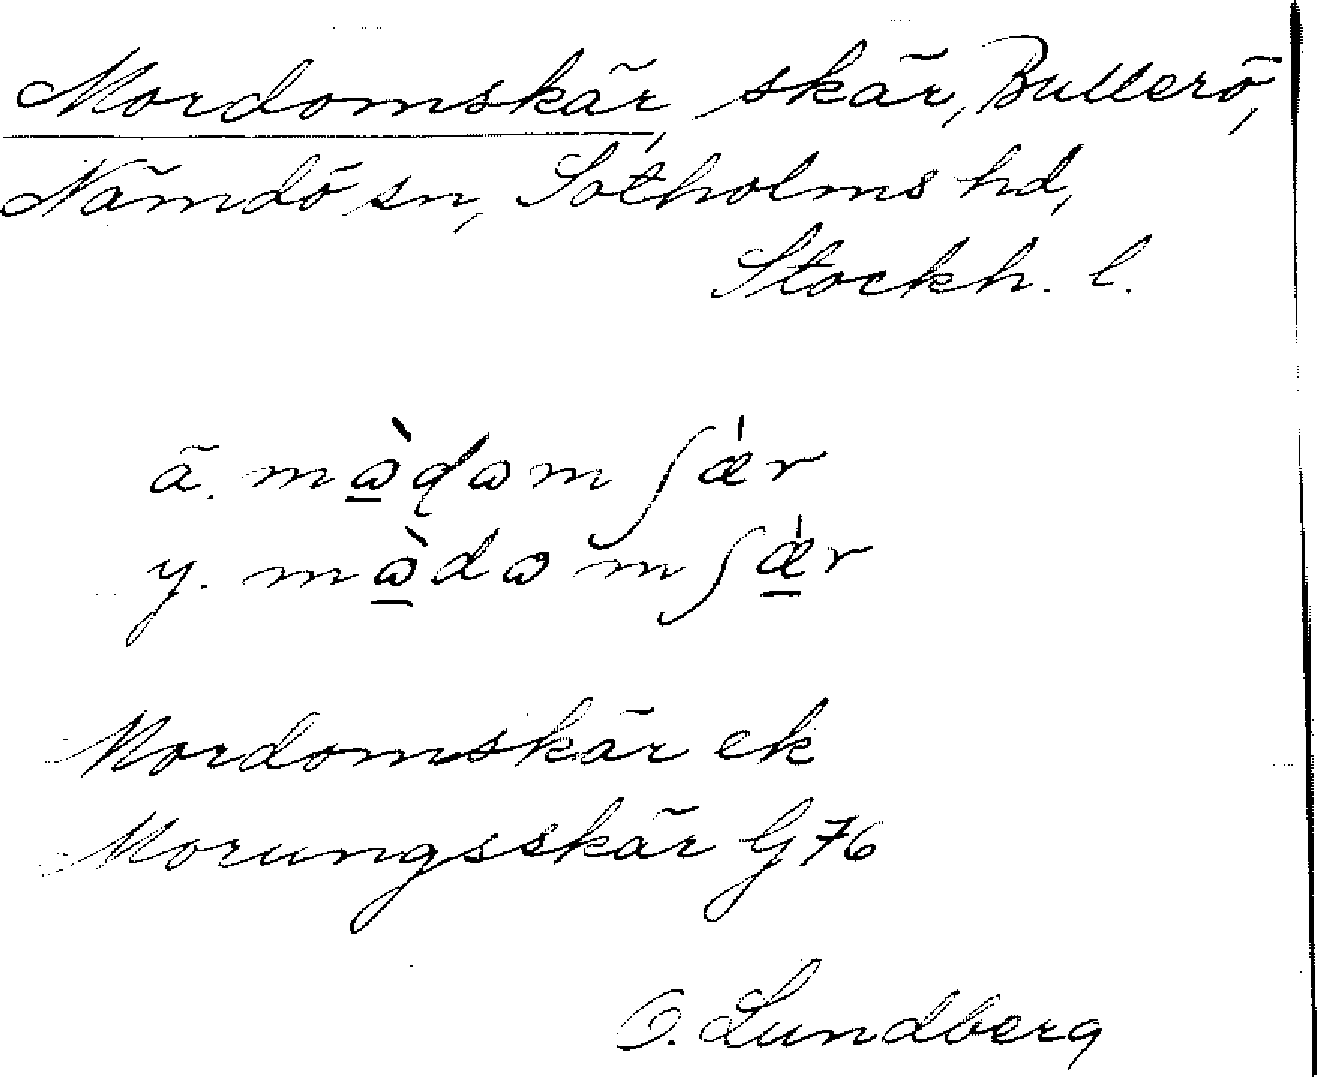 Mordomskär, skär, Bullerö,
Nämdö sn, Sotholms hd,
Stockh. l.
ä. mɷ̠̀ɖɷm ʃǽr
y. mɷ̠̀dɷm ʃǽ̠r
Mordomskär ek
Morungsskär G 76
O. Lundberg